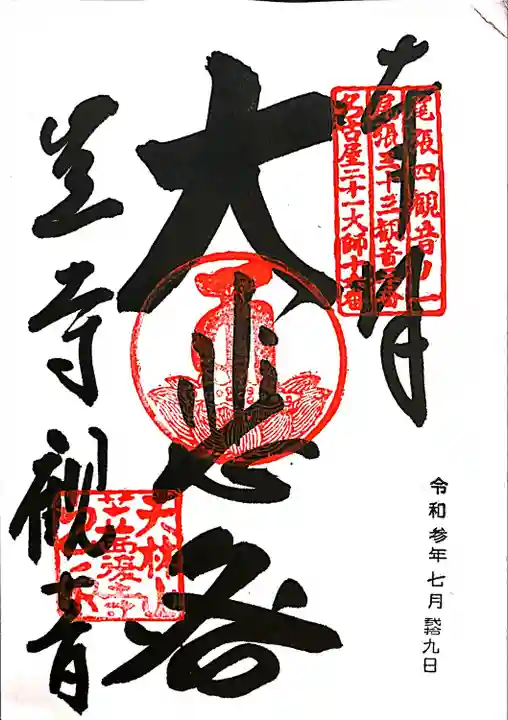 奉拝
尾張四観音ノ一
尾張三十三観音壱番
名古屋二十一大師十六番
大悲閣
笠寺観音
天林山
令和参年七月 九日